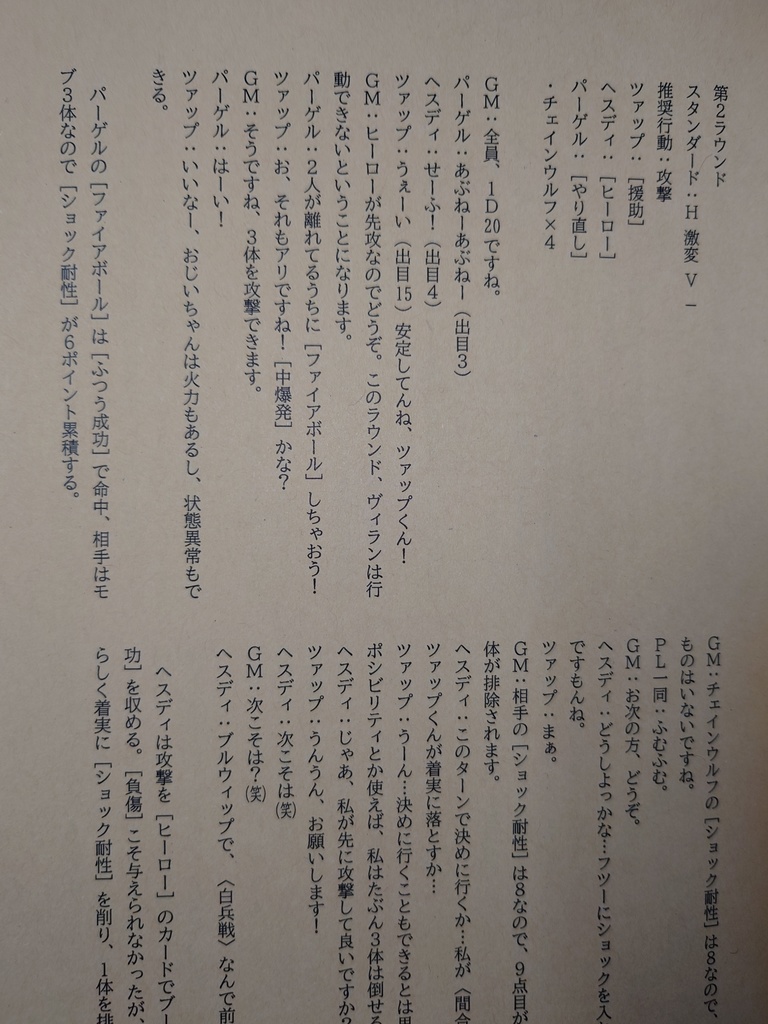 第2ラウンド
スタンダード：H 激変 V －
推奨行動：攻撃
ツァップ：［援助］
ヘスディ：［ヒーロー］
パーゲル：［やり直し］
・チェインウルフ×4
GM：全員、1D20ですね。
パーゲル：あぶねーあぶねー（出目3）
ヘスディ：せーふ！（出目4）
ツァップ：うぇーい（出目15）安定してんね、ツァップくん！
GM：ヒーローが先攻なのでどうぞ。このラウンド、ヴィランは行
動できないということになります。
パーゲル：2人が離れてるうちに［ファイアボール］しちゃおう！
ツァップ：お、それもアリですね！［中爆発］かな？
GM：そうですね、3体を攻撃できます。
パーゲル：はーい！
ツァップ：いいなー、おじいちゃんは火力もあるし、状態異常もで
きる。
パーゲルの［ファイアボール］は［ふつう成功］で命中、相手はモ
ブ3体なので［ショック耐性］が6ポイント累積する。
GM：チェインウルフの［ショック耐性］は8なので、
ものはいないですね。
PL一同：ふむふむ。
GM：お次の方、どうぞ。
ヘスディ：どうしよっかな…フツーにショックを入
ですもんね。
ツァップ：まぁ。
GM：相手の［ショック耐性］は8なので、9点目が
体が排除されます。
ヘスディ：このターンで決めに行くか…私が〈間合
ツァップくんが着実に落とすか…
ツァップ：うーん…決めに行くこともできるとは思
ポシビリティとか使えば、私はたぶん3体は倒せる
ヘスディ：じゃあ、私が先に攻撃して良いですか？
ツァップ：うんうん、お願いします！
ヘスディ：次こそは(笑)
GM：次こそは？(笑)
ヘスディ：ブルウィップで、〈白兵戦〉なんで前
ヘスディは攻撃を［ヒーロー］のカードでブー
功］を収める。［負傷］こそ与えられなかったが、
らしく着実に［ショック耐性］を削り、1体を排